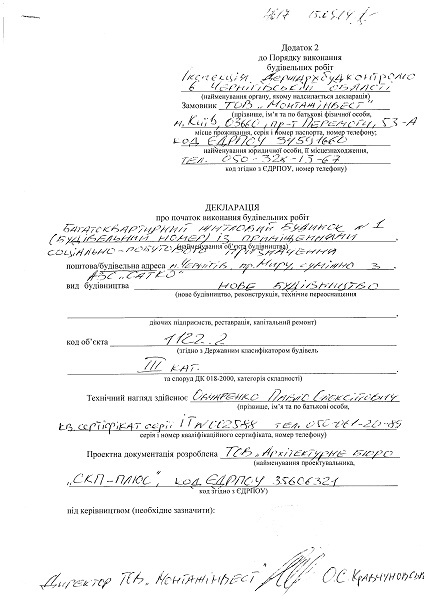 Додаток 2
до Порядку виконання
будівельних робіт
Інспекція Держархбудконтролю
в Чернігівській області
(найменування органу, якому надсилається декларація)
Замовник ТОВ „Монтажінвест"
(прізвище, ім'я та по батькові фізичної особи,
м. Київ, 03660 пр-т Перемоги, 53-А
місце проживання, серія і номер паспорта, номер телефону;
код ЄДРПОУ 34591660
найменування юридичної особи, її місцезнаходження,
тел. 050-324-13-67
код згідно з ЄДРПОУ, номер телефону)
ДЕКЛАРАЦІЯ
про початок виконання будівельних робіт
Багатоквартирний житловий будинок №1
(будівельний номер) із приміщеннями
соціально-побутового призначення
(найменування об'єкта будівництва)
поштова/будівельна адреса м. Чернігів, пр. Миру, суміжно з
АЗС „САТКО"
вид будівництва нове будівництво
(нове будівництво, реконструкція, технічне переоснащення
діючих підприємств, реставрація, капітальний ремонт)
код об'єкта 1122.2
(згідно з Державним класифікатором будівель
III кат.
та споруд ДК 018-2000, категорія складності)
Технічний нагляд здійснює Павло Олексійович
(прізвище, ім'я та по батькові особи,
кв. сертифікат серії ІТ №002588 тел. 050-
серія і номер кваліфікаційного сертифіката, номер телефону)
Проектна документація розроблена ТОВ „Архітектурне бюро
(найменування проектувальника,
„СКП-ПЛЮС", код ЄДРПОУ 35606321
код згідно з ЄДРПОУ)
під керівництвом (необхідне зазначити):
Директор ТОВ „Монтажінвест" О.С.